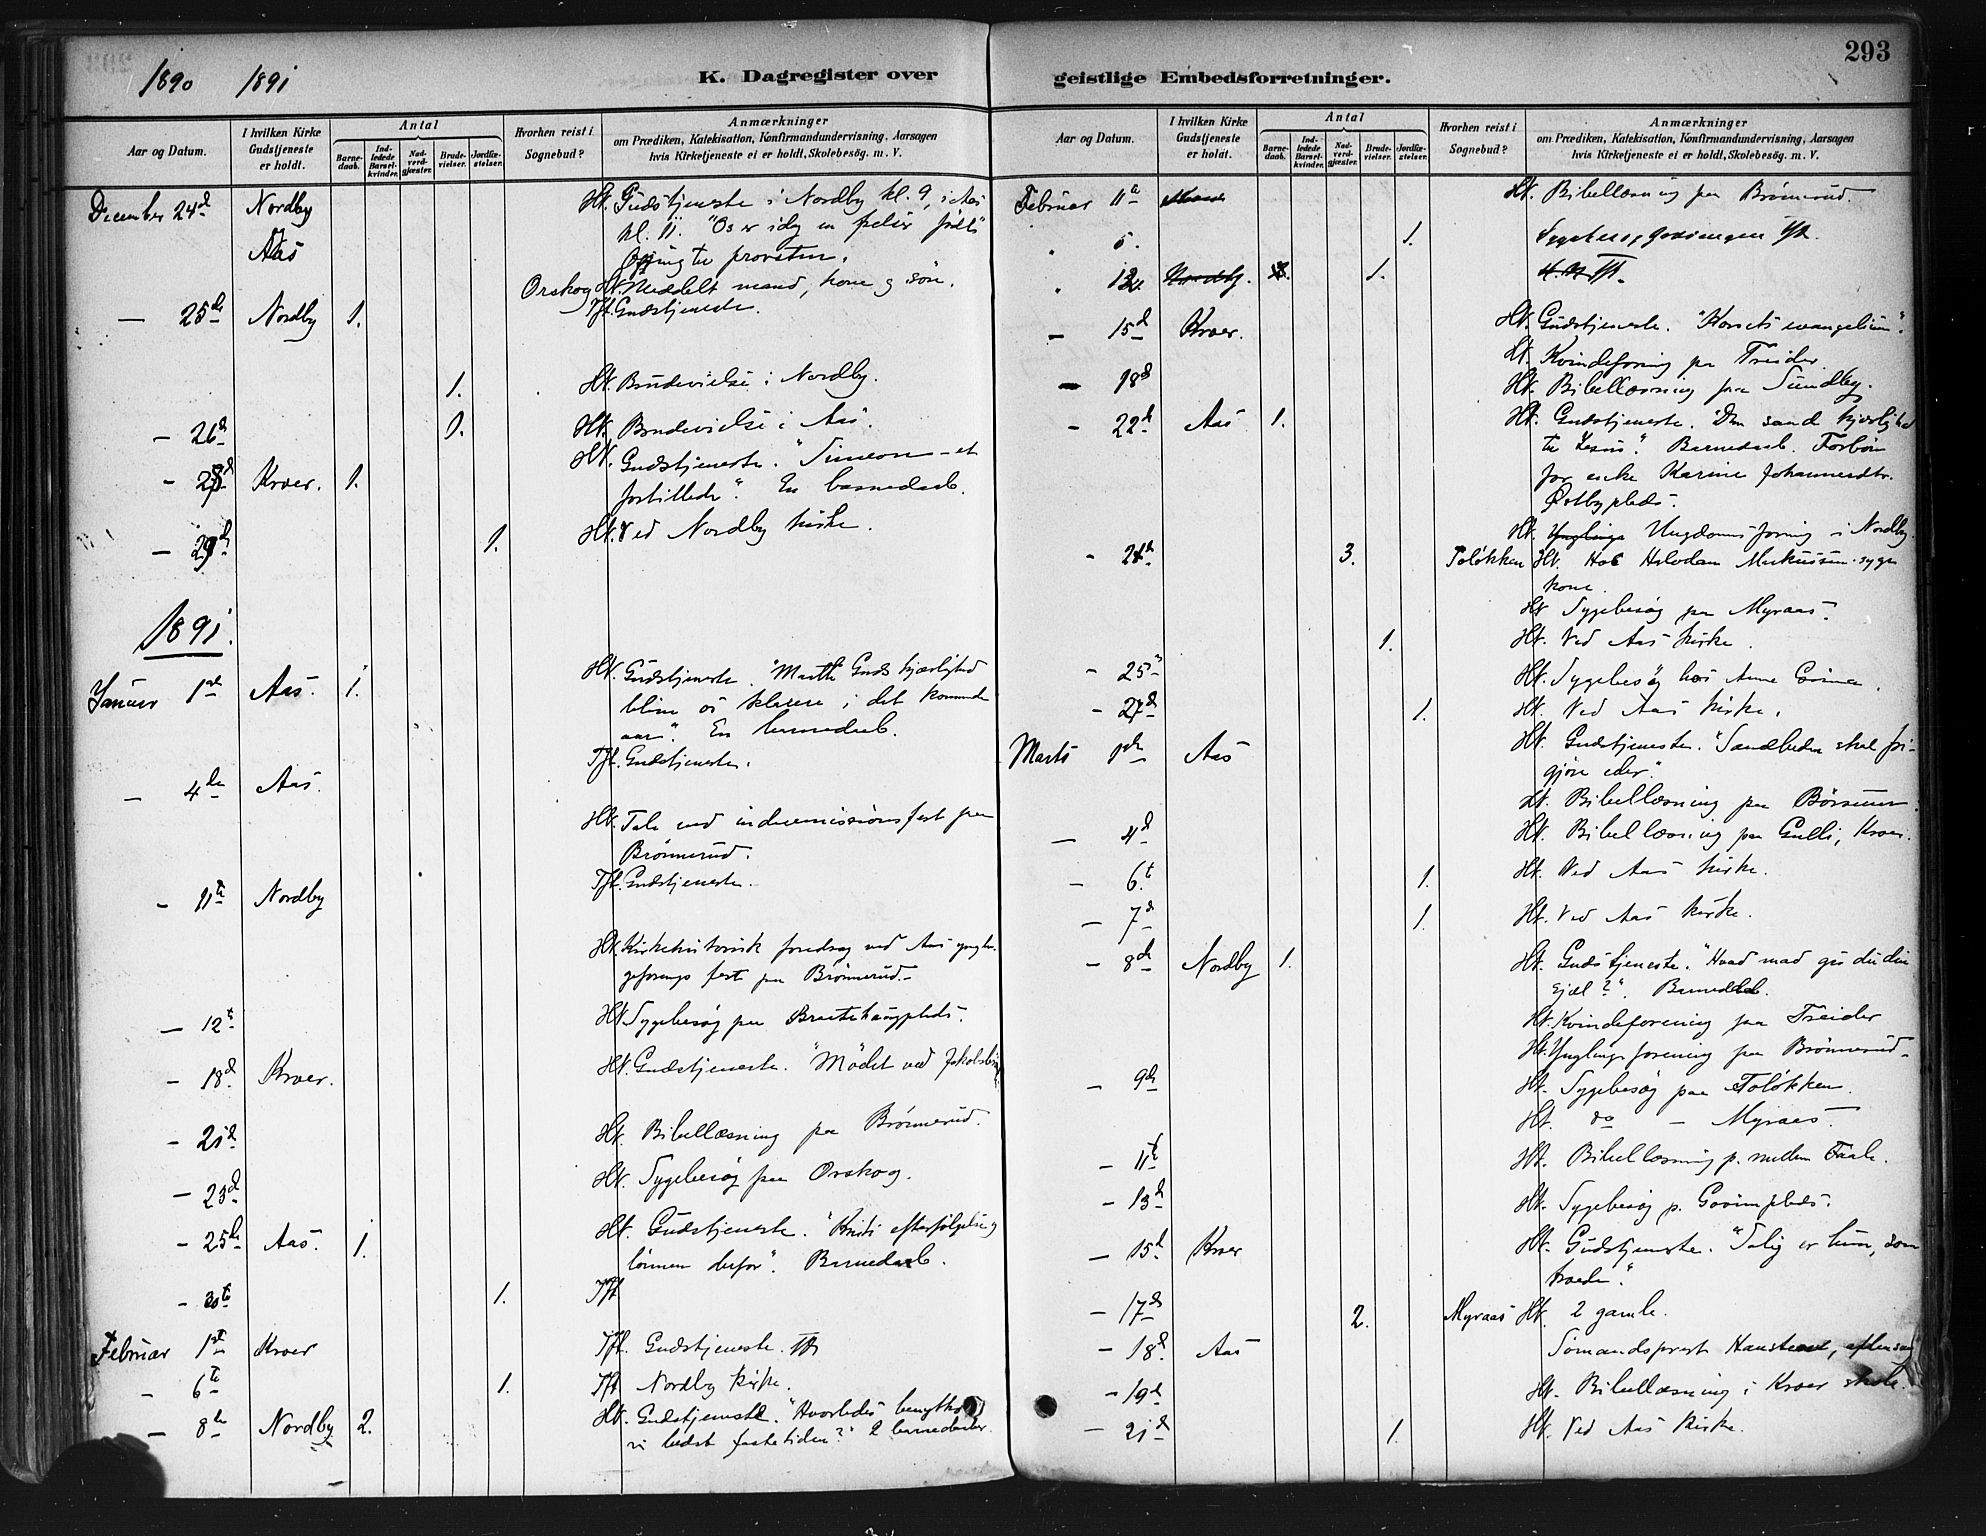 1890 1891 K. Dagregister over
Aar og Datum. I hvilken Kirke Gudstjeneste er holdt. Antal Barnedaab. Indledede Barselkvinder. Nadverdgjæster. Brudevielser. Jordfæstelser. Hvorhen reist i Sognebud? Anmærkninger om Prædiken, Katekisation, Konfirmandundervisning, Aarsagen hvis Kirketjeneste ei er holdt, Skolebesög. m. V.
December 24d Nordby Ht. Gudstjeneste i Nordby kl. 9, i Aas
Aas kl. 11. "Os er idag en frelser født"
Ofring til provsten.
Orskog Ht. Meddelt mand, kone og søn.
— 25de Nordby 1. Tft. Gudstjeneste.
1. Ht. Brudevielse i Nordby.
— 26d 1. Ht. Brudevielse i Aas.
— 28d Kroer. 1. Ht. Gudstjeneste. "Simeon - et
forbillede". En barnedaab.
— 29d 1. Ht. Ved Nordby kirke.
1891.
Januar 1ste Aas. 1. Ht. Gudstjeneste. "Maatte Guds kjærlighed
blive os klarere i det kommende
aar". En barnedaab.
— 4de Aas. Tft. Gudstjeneste.
Ht. Tale ved indremissionsfest paa
Brönnerud.
— 11te Nordby Tft. Gudstjeneste.
Ht. Kirkehistorisk foredrag ved Aas yngl.
geforenings fest paa Brönnerud.
— 12te Ht. Sygebesøg paa
— 18d Kroer. Ht. Gudstjeneste. "Mödet ved
— 21d Ht. Bibellæsning paa Brönnerud.
— 23d Ht. Sygebesøg paa Orskog.
— 25de Aas. 1. Ht. Gudstjeneste. "Kristi efterfölgelse og
lönnen derfor". Barnedaab.
— 30te 1. Tft
Februar 1ste Kroer Tft. Gudstjeneste.
— 6te 1. Tft Nordby kirke.
— 8de Nordby 2. Ht. Gudstjeneste. "Hvorledes benytte
vi bedst fastetiden?" 2 barnedaaber.
geistlige Embedsforretninger. 293
Aar og Datum. I hvilken Kirke Gudstjeneste er holdt. Antal Barnedaab. Indledede Barselkvinder. Nadverdgjæster. Brudevielser. Jordfæstelser. Hvorhen reist i Sognebud? Anmærkninger om Prædiken, Katekisation, Konfirmandundervisning, Aarsagen hvis Kirketjeneste ei er holdt, Skolebesög. m. V.
Februar 11te Ht. Bibellæsning paa Brönnerud.
1.
Nordby. 1.
— 15d Kroer. Ht. Gudstjeneste. "Korsets evangelium".
Ht. Kvindeforening paa Treider.
— 18d Ht. Bibellæsning paa Sundby.
— 22d Aas 1. Ht. Gudstjeneste. "Den sande kjærlighed
til Jesus". Barnedaab. Forbön
for enke Karine Johannesdtr.
Østbyplads.
Ht. Ynglinge Ungdomsforening i Nordby.
— 24de 3. Toløkken Ht. Hos Halvdan syge
kone.
Ht. Sygebesøg paa Myraas.
1. Ht. Ved Aas kirke.
— 25de Ht. Sygebesøg hos Anne
— 27d 1. Ht. Ved Aas kirke.
Marts 1ste Aas Ht. Gudstjeneste. "Sandheden skal fri-
gjøre eder".
Ht. Bibellæsning paa Börsum.
— 4d Ht. Bibellæsning paa Gulli, Kroer.
— 6t 1. Ht. Ved Aas kirke.
— 7d 1. Ht. Ved Aas kirke.
— 8de Nordby 1. Ht. Gudstjeneste. "Hvad mad gir du din
sjæl?". Barnedaab.
Ht. Kvindeforening paa Treider
Ht. Ynglingeforening paa Brönnerud.
— 9de Ht. Sygebesøg paa Toløkken.
Ht. do — Myraas.
— 11te Ht. Bibellæsning p. mellem
— 13d Ht. Sygebesøg p.
— 15d Kroer Ht. Gudstjeneste. "Salig er hun, som
troede".
— 17de 2. Myraas Ht. 2 gamle.
— 18d Aas Sömandsprest Hansteen, aftensang
— 19d Ht. Bibellæsning i Kroer skole.
— 21d 1. Ht. Ved Aas kirke.